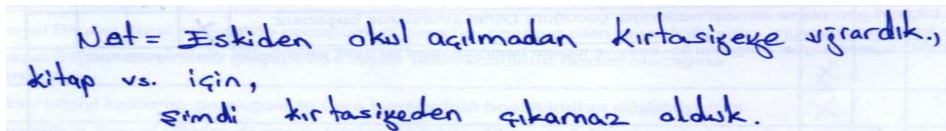 Not = Eskiden okul açılmadan kırtasiyeye uğrardık.,
kitap vs. için,
şimdi kırtasiyeden çıkamaz olduk.